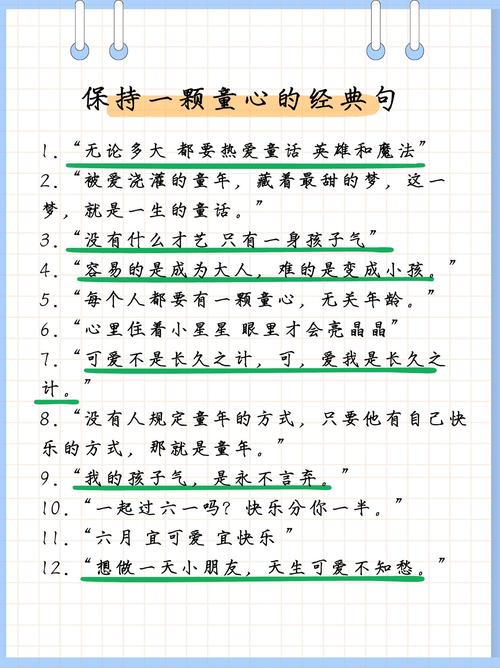 保持一颗童心的经典句
1. “无论多大 都要热爱童话 英雄和魔法”
2. “被爱浇灌的童年，藏着最甜的梦，这一
梦，就是一生的童话。”
3. “没有什么才艺 只有一身孩子气”
4. “容易的是成为大人，难的是变成小孩。”
5. “每个人都要有一颗童心，无关年龄。”
6. “心里住着小星星 眼里才会亮晶晶”
7. “可爱不是长久之计，可，爱我是长久之
计。”
8. “没有人规定童年的方式，只要他有自己快
乐的方式，那就是童年。”
9. “我的孩子气，是永不言弃。”
10. “一起过六一吗？快乐分你一半。”
11. “六月 宜可爱 宜快乐 ”
12. “想做一天小朋友，天生可爱不知愁。”